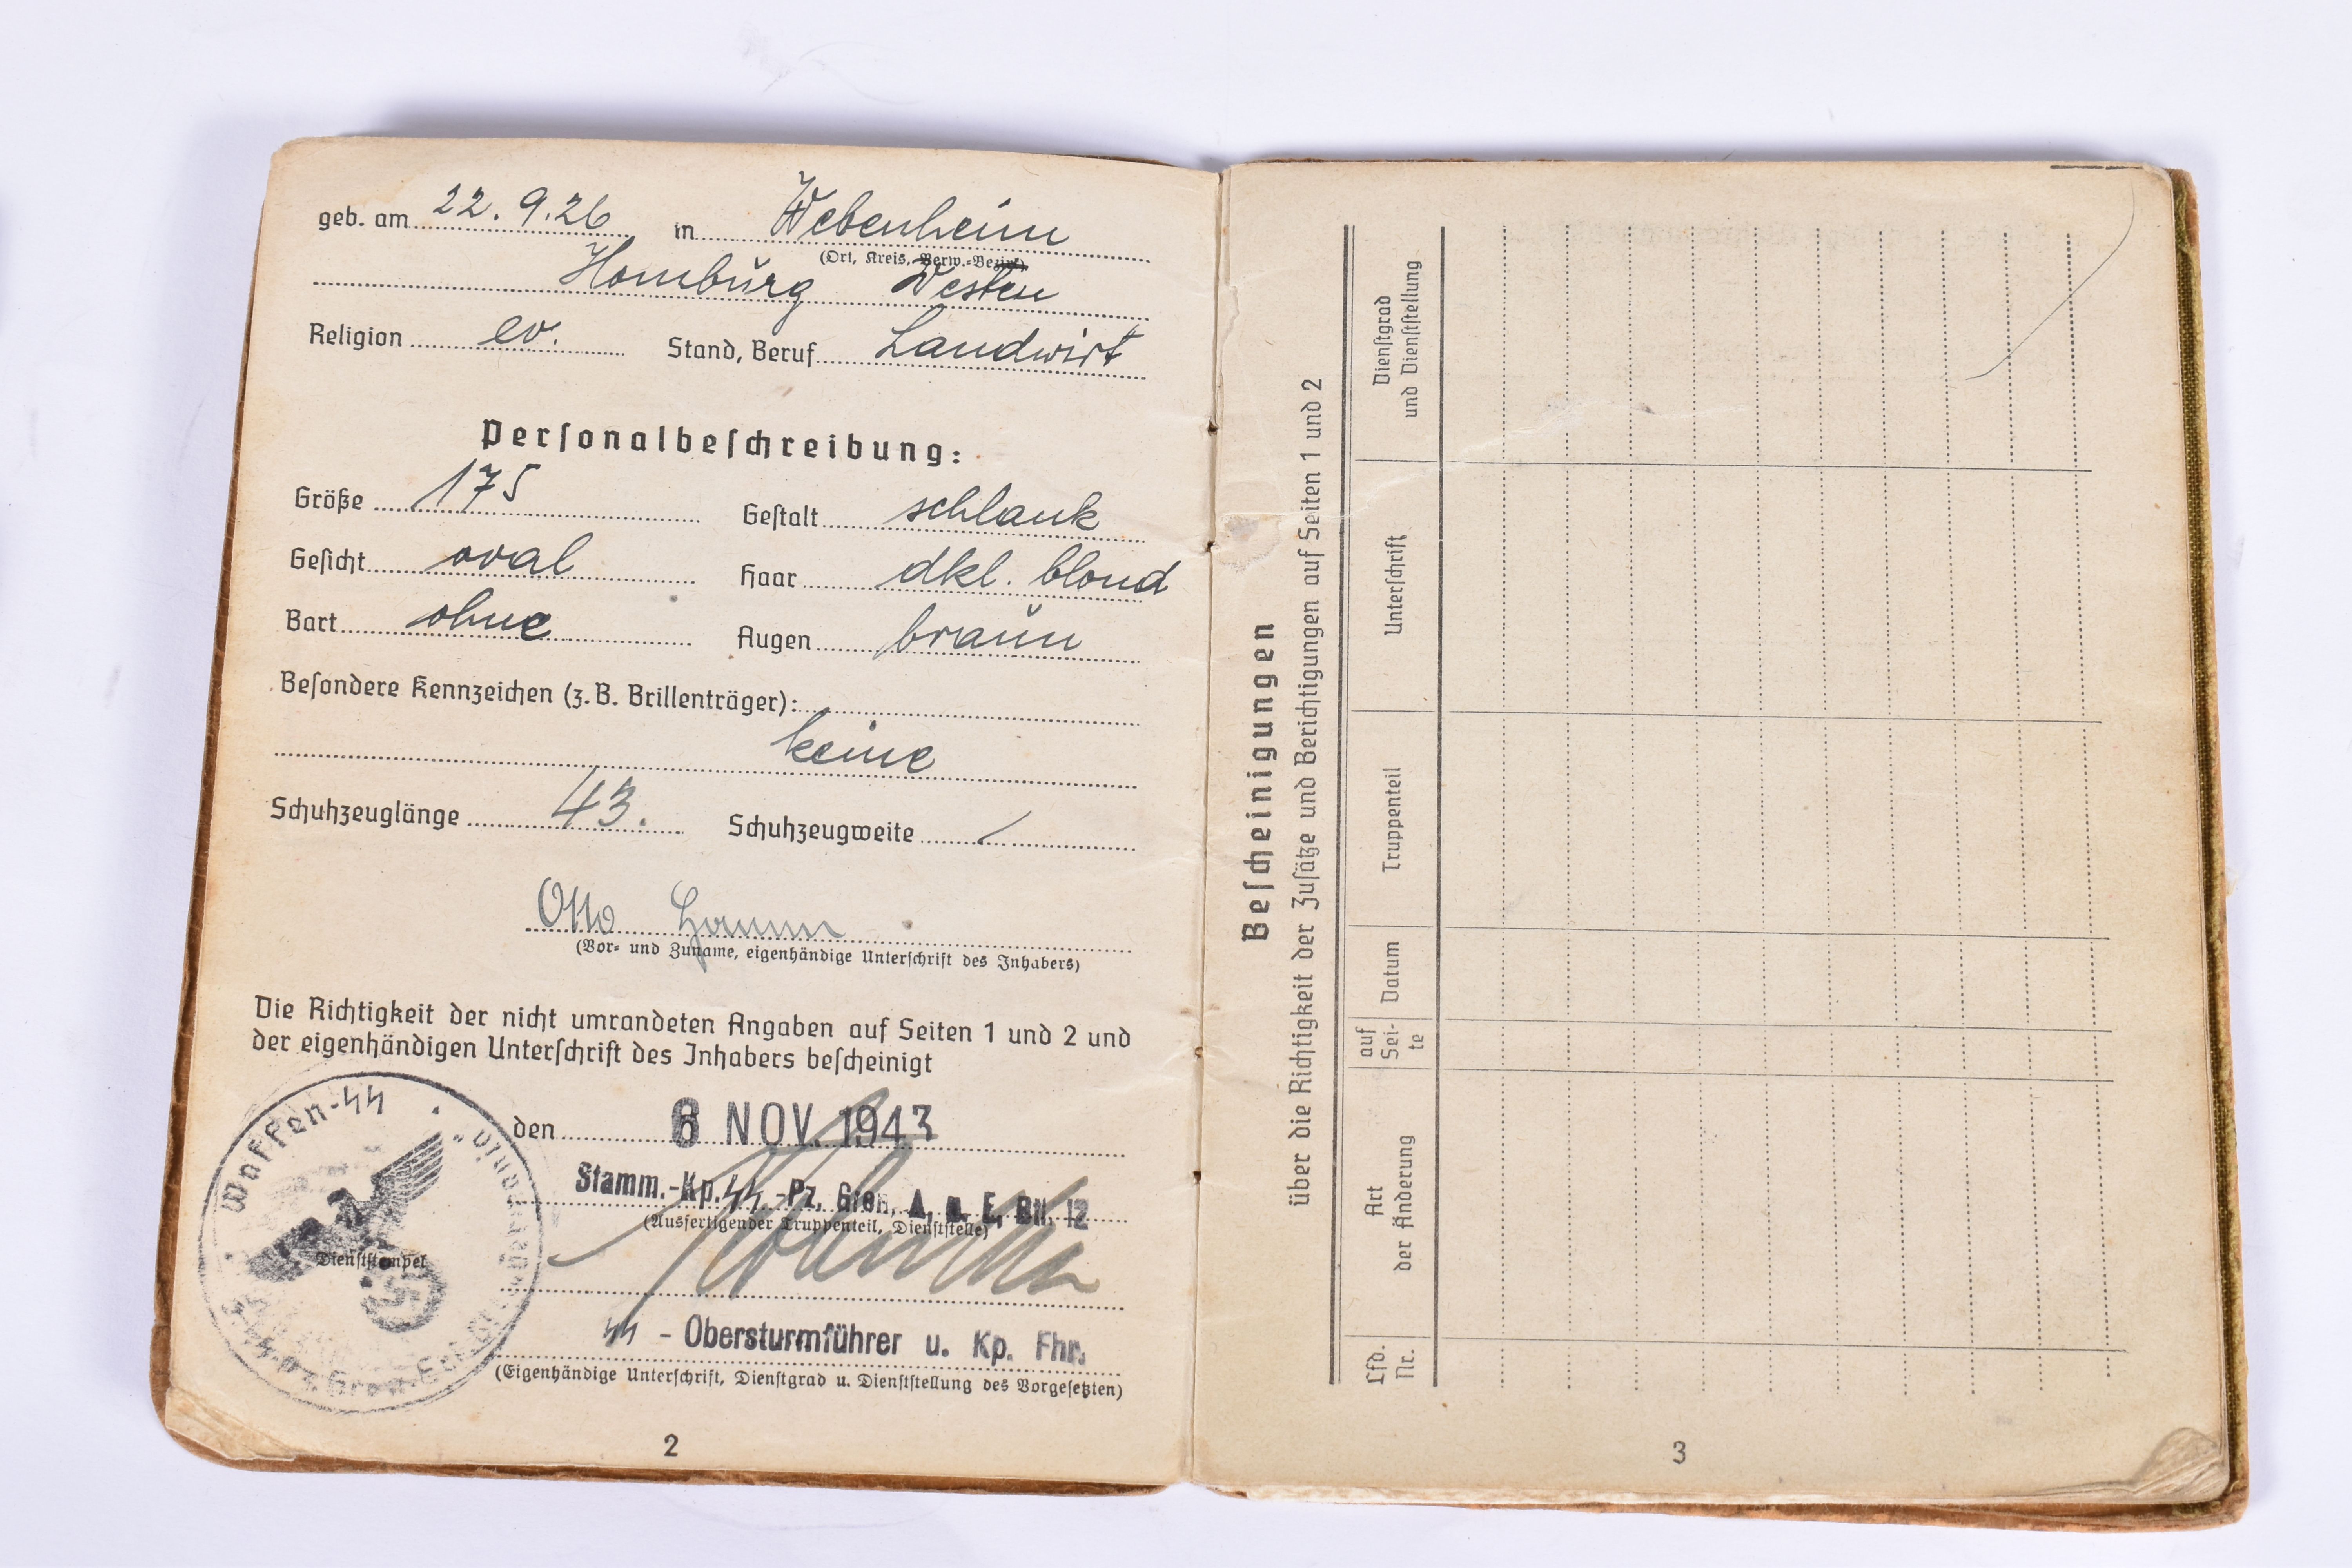 geb. am 22. 9. 26 in Webenheim
(Ort, Kreis, Verw.-Bezirk)
Homburg Westen
Religion ev. Stand, Beruf Landwirt
Personalbeschreibung:
Größe 175 Gestalt schlank
Gesicht oval Haar dkl. blond
Bart ohne Augen braun
Besondere Kennzeichen (z. B. Brillenträger):
keine
Schuhzeuglänge 43. Schuhzeugweite /
Otto Hamm
(Vor- und Zuname, eigenhändige Unterschrift des Inhabers)
Die Richtigkeit der nicht umrandeten Angaben auf Seiten 1 und 2 und
der eigenhändigen Unterschrift des Inhabers bescheinigt
Waffen-SS
den 6 NOV. 1943
Stamm.-Kp. SS.-Pz. Gren. A. u. E. Btl. 12
(Ausfertigender Truppenteil, Dienststelle)
Dienststempel
SS - Obersturmführer u. Kp. Fhr.
(Eigenhändige Unterschrift, Dienstgrad u. Dienststellung des Vorgesetzten)
2
Bescheinigungen
über die Richtigkeit der Zusätze und Berichtigungen auf Seiten 1 und 2
Lfd. Nr.
Art der Änderung
auf Sei- te
Datum
Truppenteil
Unterschrift
Dienstgrad und Dienststellung
3